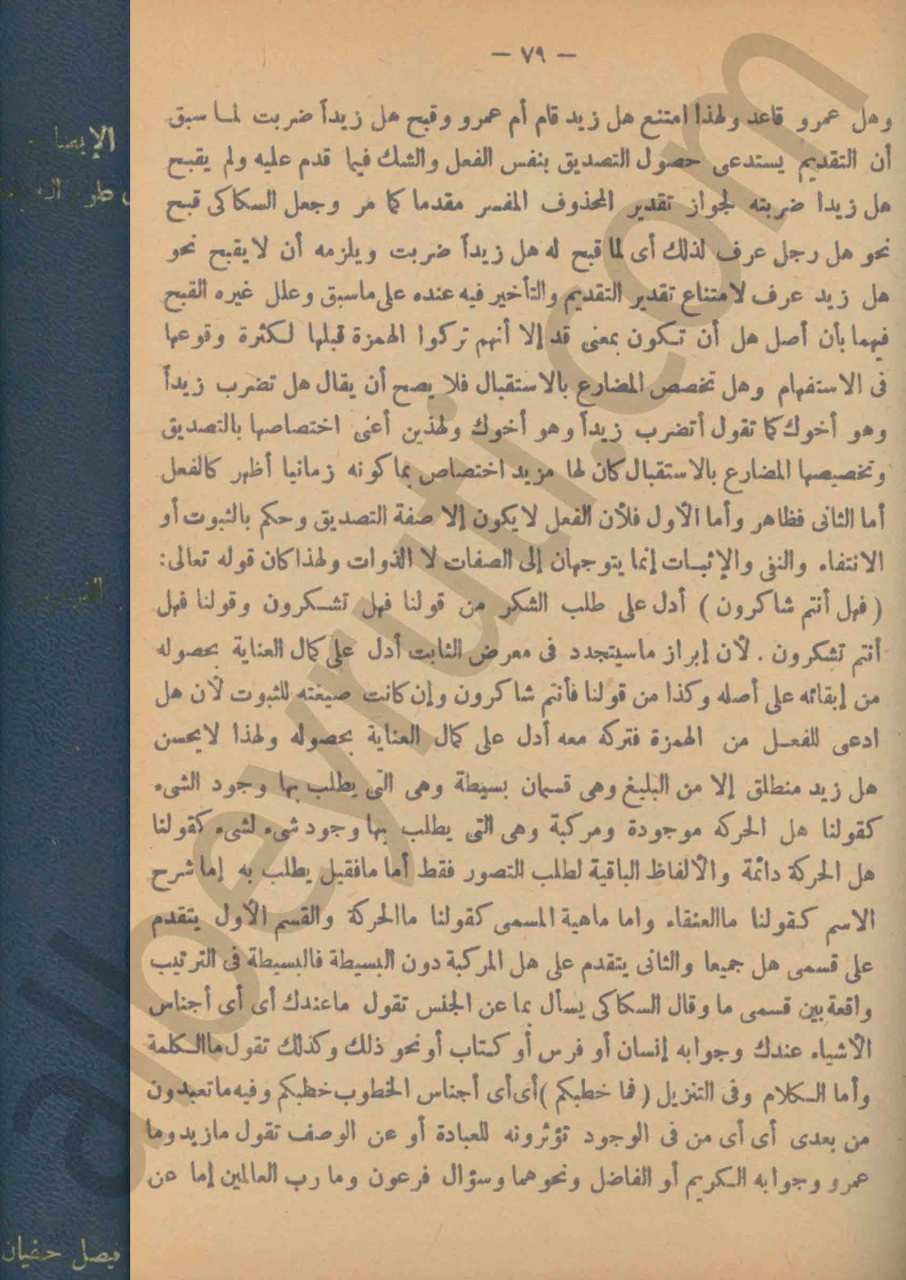 — ٧٩ —
وهل عمرو قاعد ولهذا امتنع هل زيد قام أم عمرو وقبح هل زيداً ضربت لما سبق
أن التقديم يستدعى حصول التصديق بنفس الفعل والشك فيما قدم عليه ولم يقبح
هل زيدا ضربته لجواز تقدير المحذوف المفسر مقدما كما مر وجعل السكاكى قبح
نحو هل رجل عرف لذلك أى لما قبح له هل زيداً ضربت ويلزمه أن لا يقبح نحو
هل زيد عرف لامتناع تقدير التقديم والتأخير فيه عنده على ماسبق وعلل غيره القبح
فيهما بأن أصل هل أن تكون بمعنى قد إلا أنهم تركوا الهمزة قبلها لكثرة وقوعها
فى الاستفهام وهل تخصص المضارع بالاستقبال فلا يصح أن يقال هل تضرب زيداً
وهو أخوك كما تقول أتضرب زيداً وهو أخوك ولهذين أعنى اختصاصها بالتصديق
وتخصيصها المضارع بالاستقبال كان لها مزيد اختصاص بما كونه زمانيا أظهر كالفعل
أما الثانى فظاهر وأما الأول فلأن الفعل لا يكون إلا صفة التصديق وحكم بالثبوت أو
الانتفاء والنفى والإثبات إنما يتوجهان إلى الصفات لا الذوات ولهذا كان قوله تعالى:
( فهل أنتم شاكرون ) أدل على طلب الشكر من قولنا فهل تشكرون وقولنا فهل
أنتم تشكرون . لأن إبراز ماسيتجدد فى معرض الثابت أدل على كمال العناية بحصوله
من إبقائه على أصله وكذا من قولنا فأنتم شاكرون وإن كانت صيغته للثبوت لأن هل
ادعى للفعل من الهمزة فتركه معه أدل على كمال العناية بحصوله ولهذا لايحسن
هل زيد منطلق إلا من البليغ وهى قسمان بسيطة وهى التى يطلب بها وجود الشىء
كقولنا هل الحركه موجودة ومركبة وهى التى يطلب بها وجود شىء لشىء كقولنا
هل الحركة دائمة والألفاظ الباقية لطلب التصور فقط أما مافقيل يطلب به إما شرح
الاسم كقولنا ماالعنقاء واما ماهية المسمى كقولنا ماالحركة والقسم الأول يتقدم
على قسمى هل جميعا والثانى يتقدم على هل المركبة دون البسيطة فالبسيطة فى الترتيب
واقعة بين قسمى ما وقال السكاكى يسأل بما عن الجنس تقول ماعندك أى أى أجناس
الأشياء عندك وجوابه إنسان أو فرس أو كتاب أو نحو ذلك وكذلك تقول ماالكلمة
وأما الكلام وفى التنزيل ( فما خطبكم ) أى أى أجناس الخطوب خطبكم وفيه ماتعبدون
من بعدى أى أى من فى الوجود تؤثرونه للعبادة أو عن الوصف تقول مازيد وما
عمرو وجوابه الكريم أو الفاضل ونحوهما وسؤال فرعون وما رب العالمين إما عن
فيصل حفيان
albeyruti.com